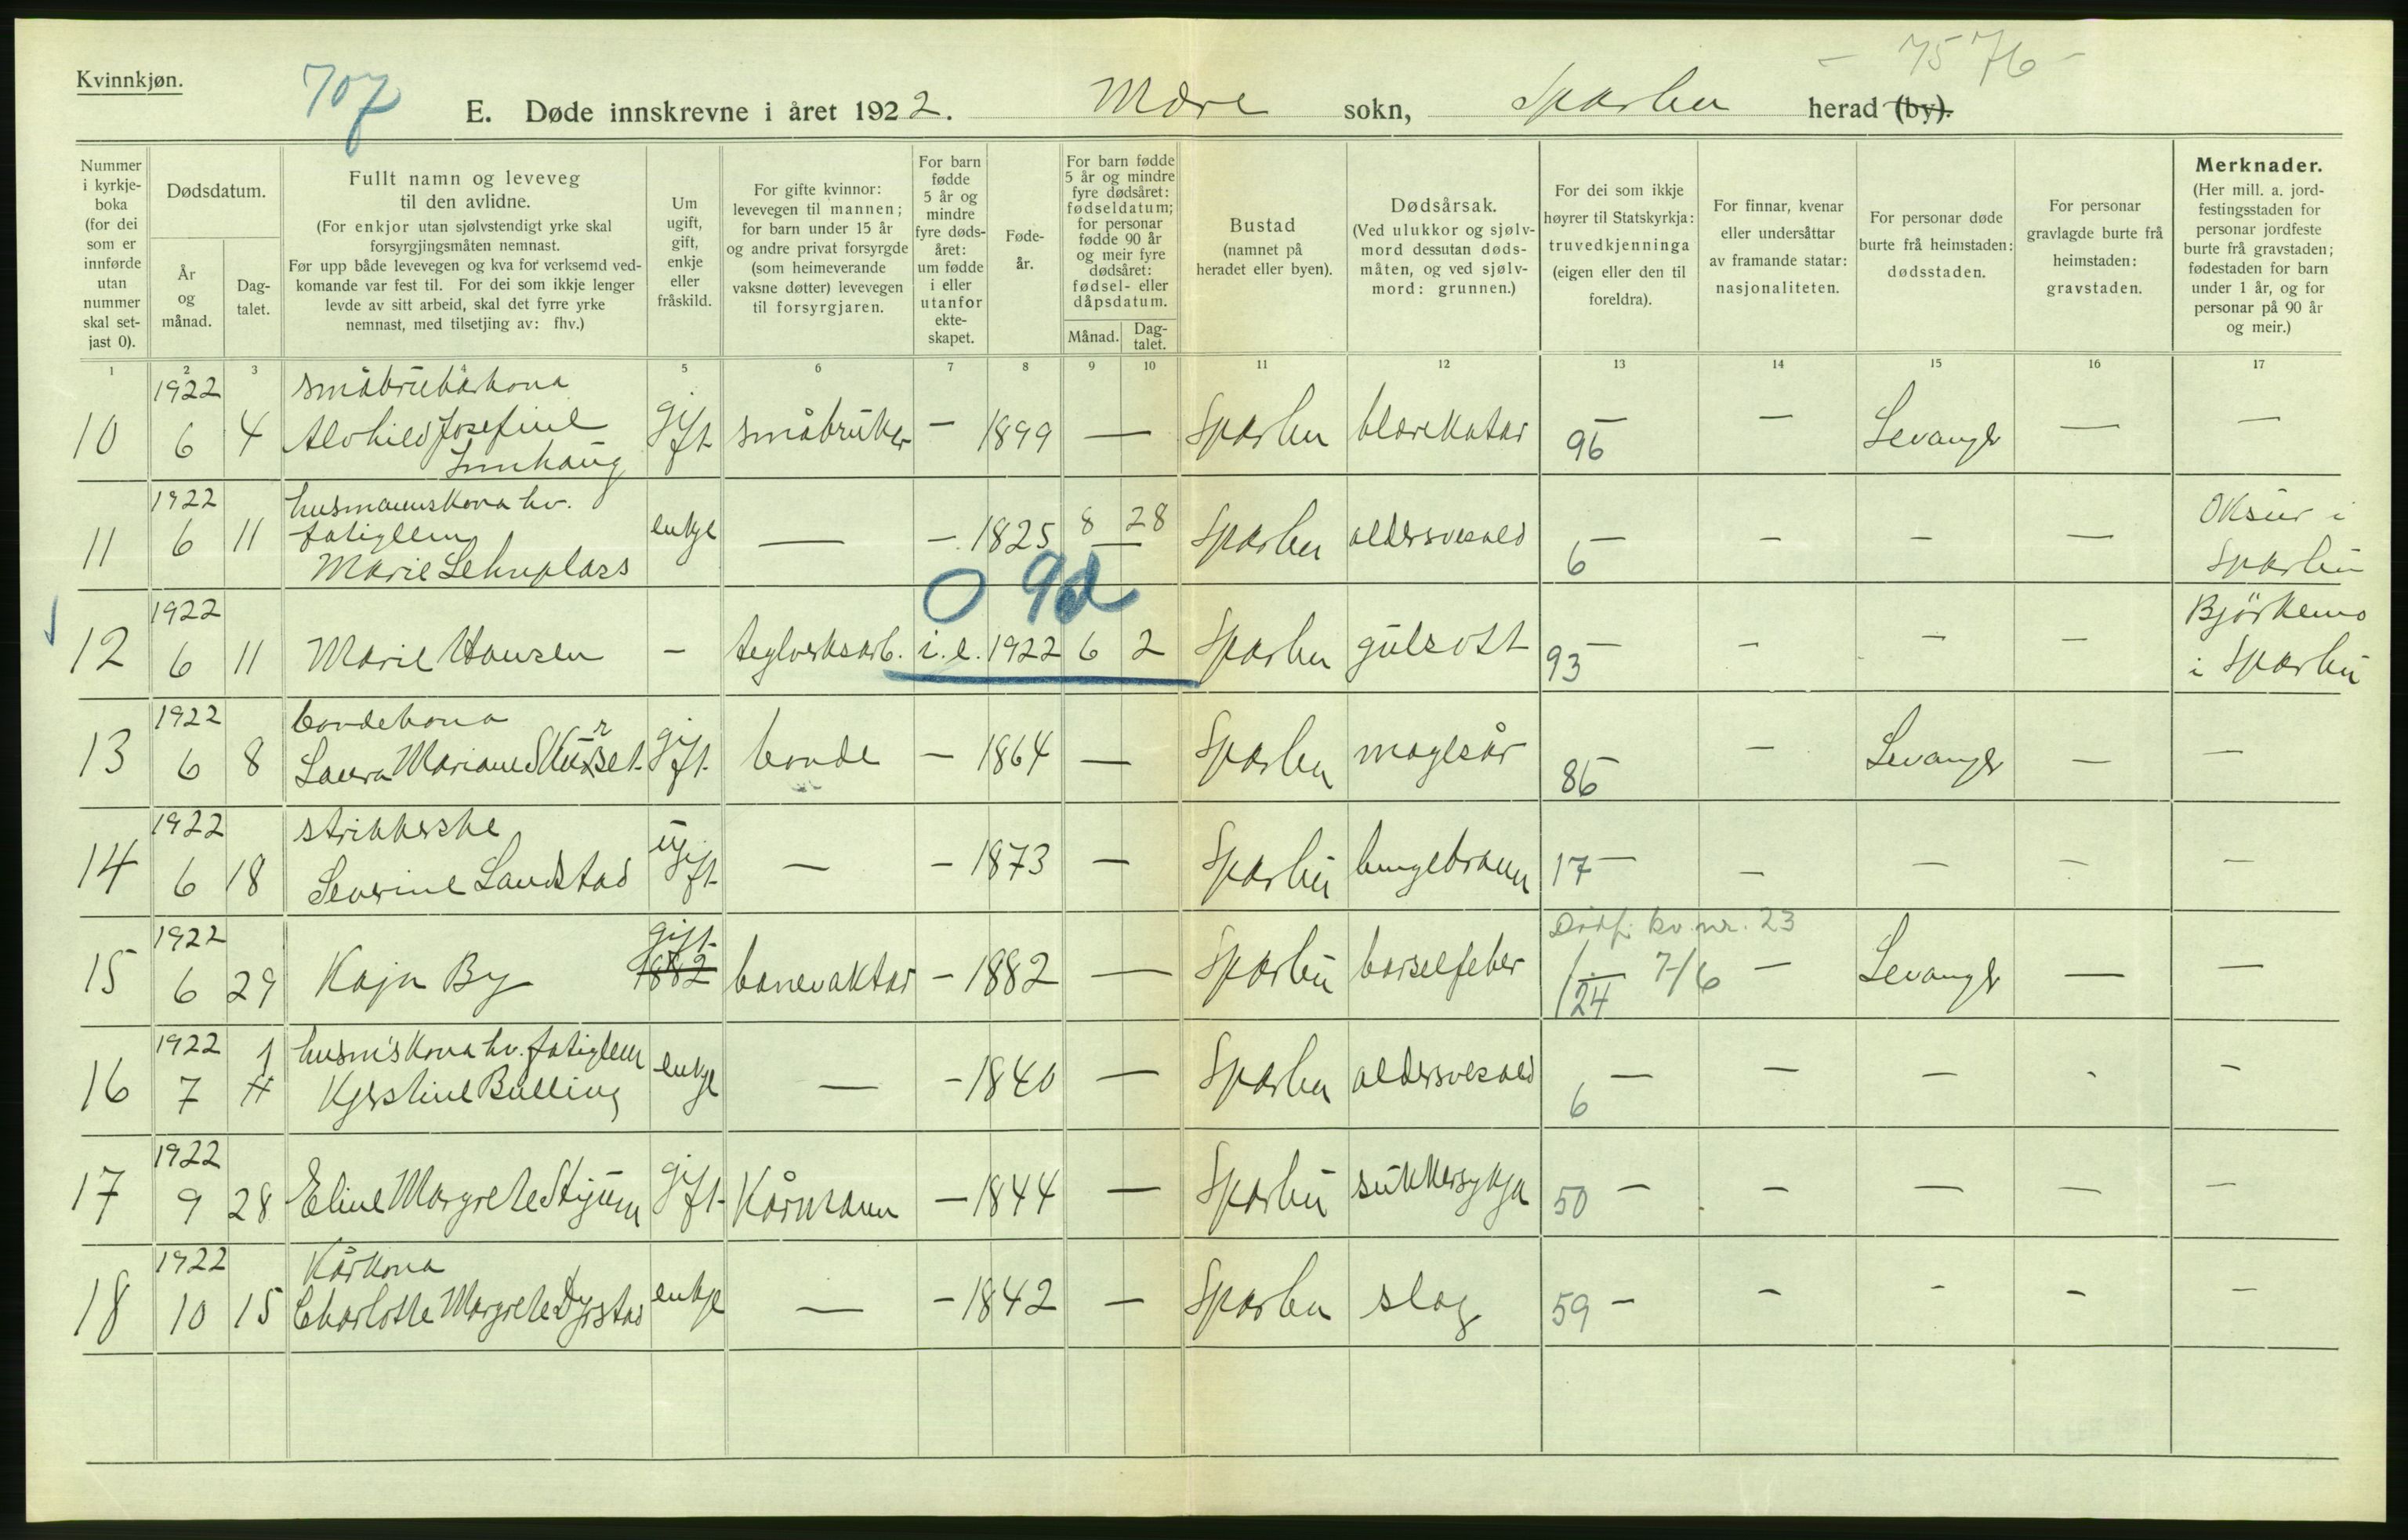 - 75 76 -
Kvinnkjøn.
707
E. Døde innskrevne i året 1922. Mære sokn, Sparbu herad (by).
Nummer i kyrkje-boka (for dei som er innførde utan nummer skal set-jast 0).
Dødsdatum.
År og månad.
Dag-talet.
Fullt namn og leveveg til den avlidne.
(For enkjor utan sjølvstendigt yrke skal forsyrgjingsmåten nemnast.
Før upp både levevegen og kva for verksemd ved-komande var fest til. For dei som ikkje lenger levde av sitt arbeid, skal det fyrre yrke nemnast, med tilsetjing av: fhv.)
Um ugift, gift, enkje eller fråskild.
For gifte kvinnor: levevegen til mannen; for barn under 15 år og andre privat forsyrgde (som heimeverande vaksne døtter) levevegen til forsyrgjaren.
For barn fødde 5 år og mindre fyre døds-året: um fødde i eller utanfor ekte-skapet.
Føde-år.
For barn fødde 5 år og mindre fyre dødsåret: fødseldatum; for personar fødde 90 år og meir fyre dødsåret: fødsel- eller dåpsdatum.
Månad.
Dag-talet.
Bustad (namnet på heradet eller byen).
Dødsårsak.
(Ved ulukkor og sjølv-mord dessutan døds-måten, og ved sjølv-mord: grunnen.)
For dei som ikkje høyrer til Statskyrkja: truvedkjenninga (eigen eller den til foreldra).
For finnar, kvenar eller undersåttar av framande statar: nasjonaliteten.
For personar døde burte frå heimstaden: dødsstaden.
For personar gravlagde burte frå heimstaden: gravstaden.
Merknader.
(Her mill. a. jord-festingsstaden for personar jordfeste burte frå gravstaden; fødestaden for barn under 1 år, og for personar på 90 år og meir.)
1 2 3 4 5 6 7 8 9 10 11 12 13 14 15 16 17
10 1922 6 4 småbrukarkona Alvhild Josefine Innhaug gift småbruker - 1899 - Sparbu blærekatar - 96 - Levanger - -
11 1922 6 11 husmannskona hv. fatiglem Marie Lehnplass enkje - - 1825 8 28 - Sparbu aldersvekeld - 6 - - - Oksur i Sparbu
0 9d
12 1922 6 11 Marie Hansen - teglverksarb. i.e. 1922 6 2 Sparbu gulsott - 93 - - - Bjørkemo i Sparbu
13 1922 6 8 bondekona Laura Mariane Skurset gift bonde - 1864 - Sparbu magesår 86 - Levanger - -
14 1922 6 18 strikkerske Severine Landstad ugift - - 1873 - Sparbu lungebrann 17 - - - - -
15 1922 6 29 Kaja By gift 1882 banevaktar - 1882 - Sparbu barselfeber Dødf. kv. nr. 23 7/6 24 - Levanger - -
16 1922 7 1 husm's kona hv. fatiglem Kjerstine Bulling enkje - - 1840 - Sparbu aldersvekeld - 6 - - - -
17 1922 9 28 Eline Margrete Stijum gift Kårmann - 1844 - Sparbu sukkersykja 50 - - - - -
18 1922 10 15 Kårkona Charlotte Margrete Dyrstad enkje - - 1842 - Sparbu slag 59 - - - - -